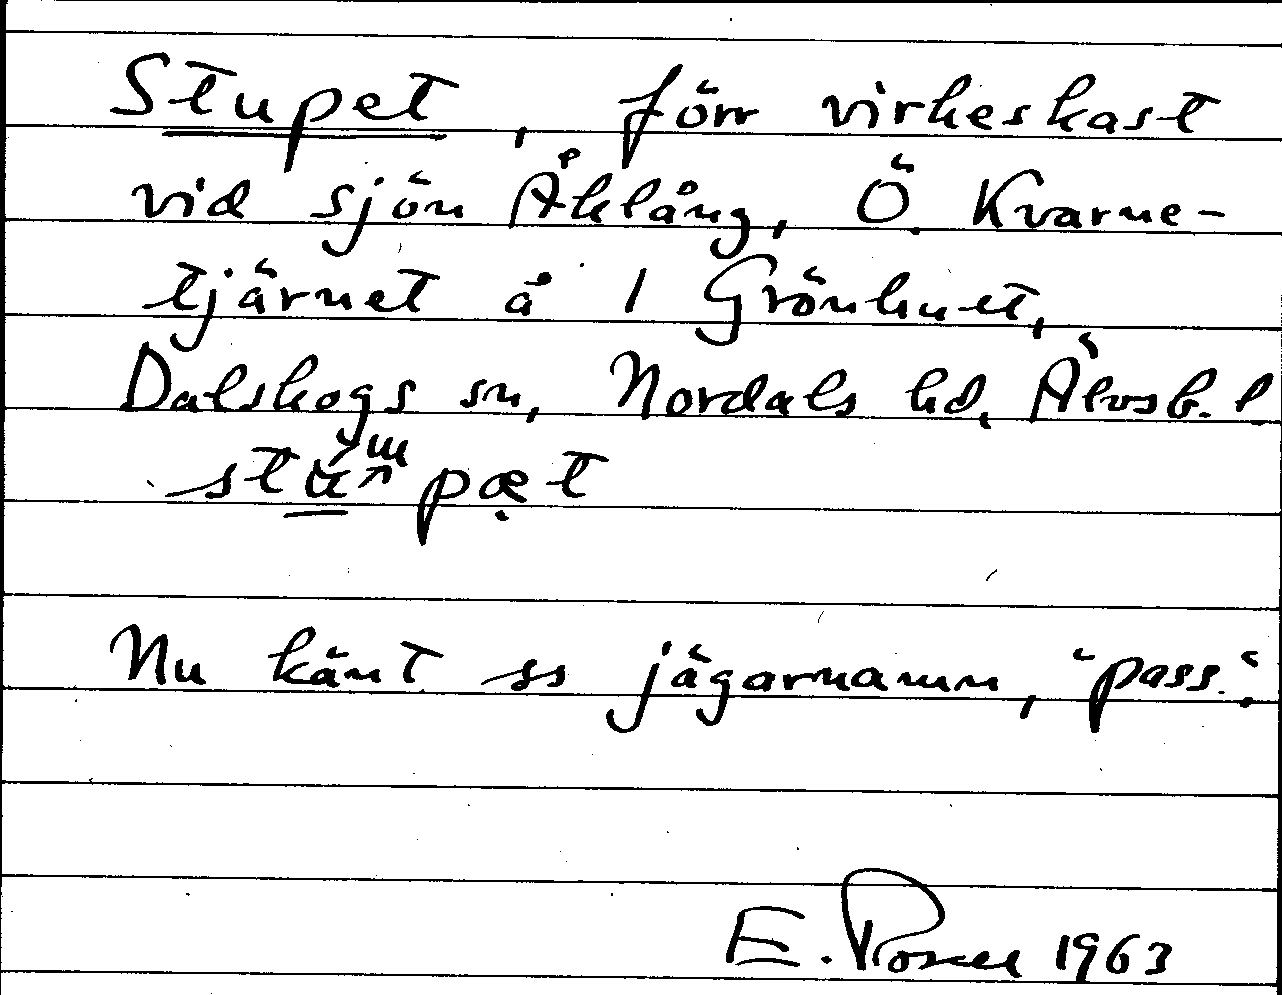 Stupet, förr virkeskast
vid sjön Åklång, Ö. Kvarne-
tjärnet å 1 Grönhult,
Dalskogs sn, Nordals hd, Älvsb. l
Nu känt ss jägarnamn, "pass".
E. 1963